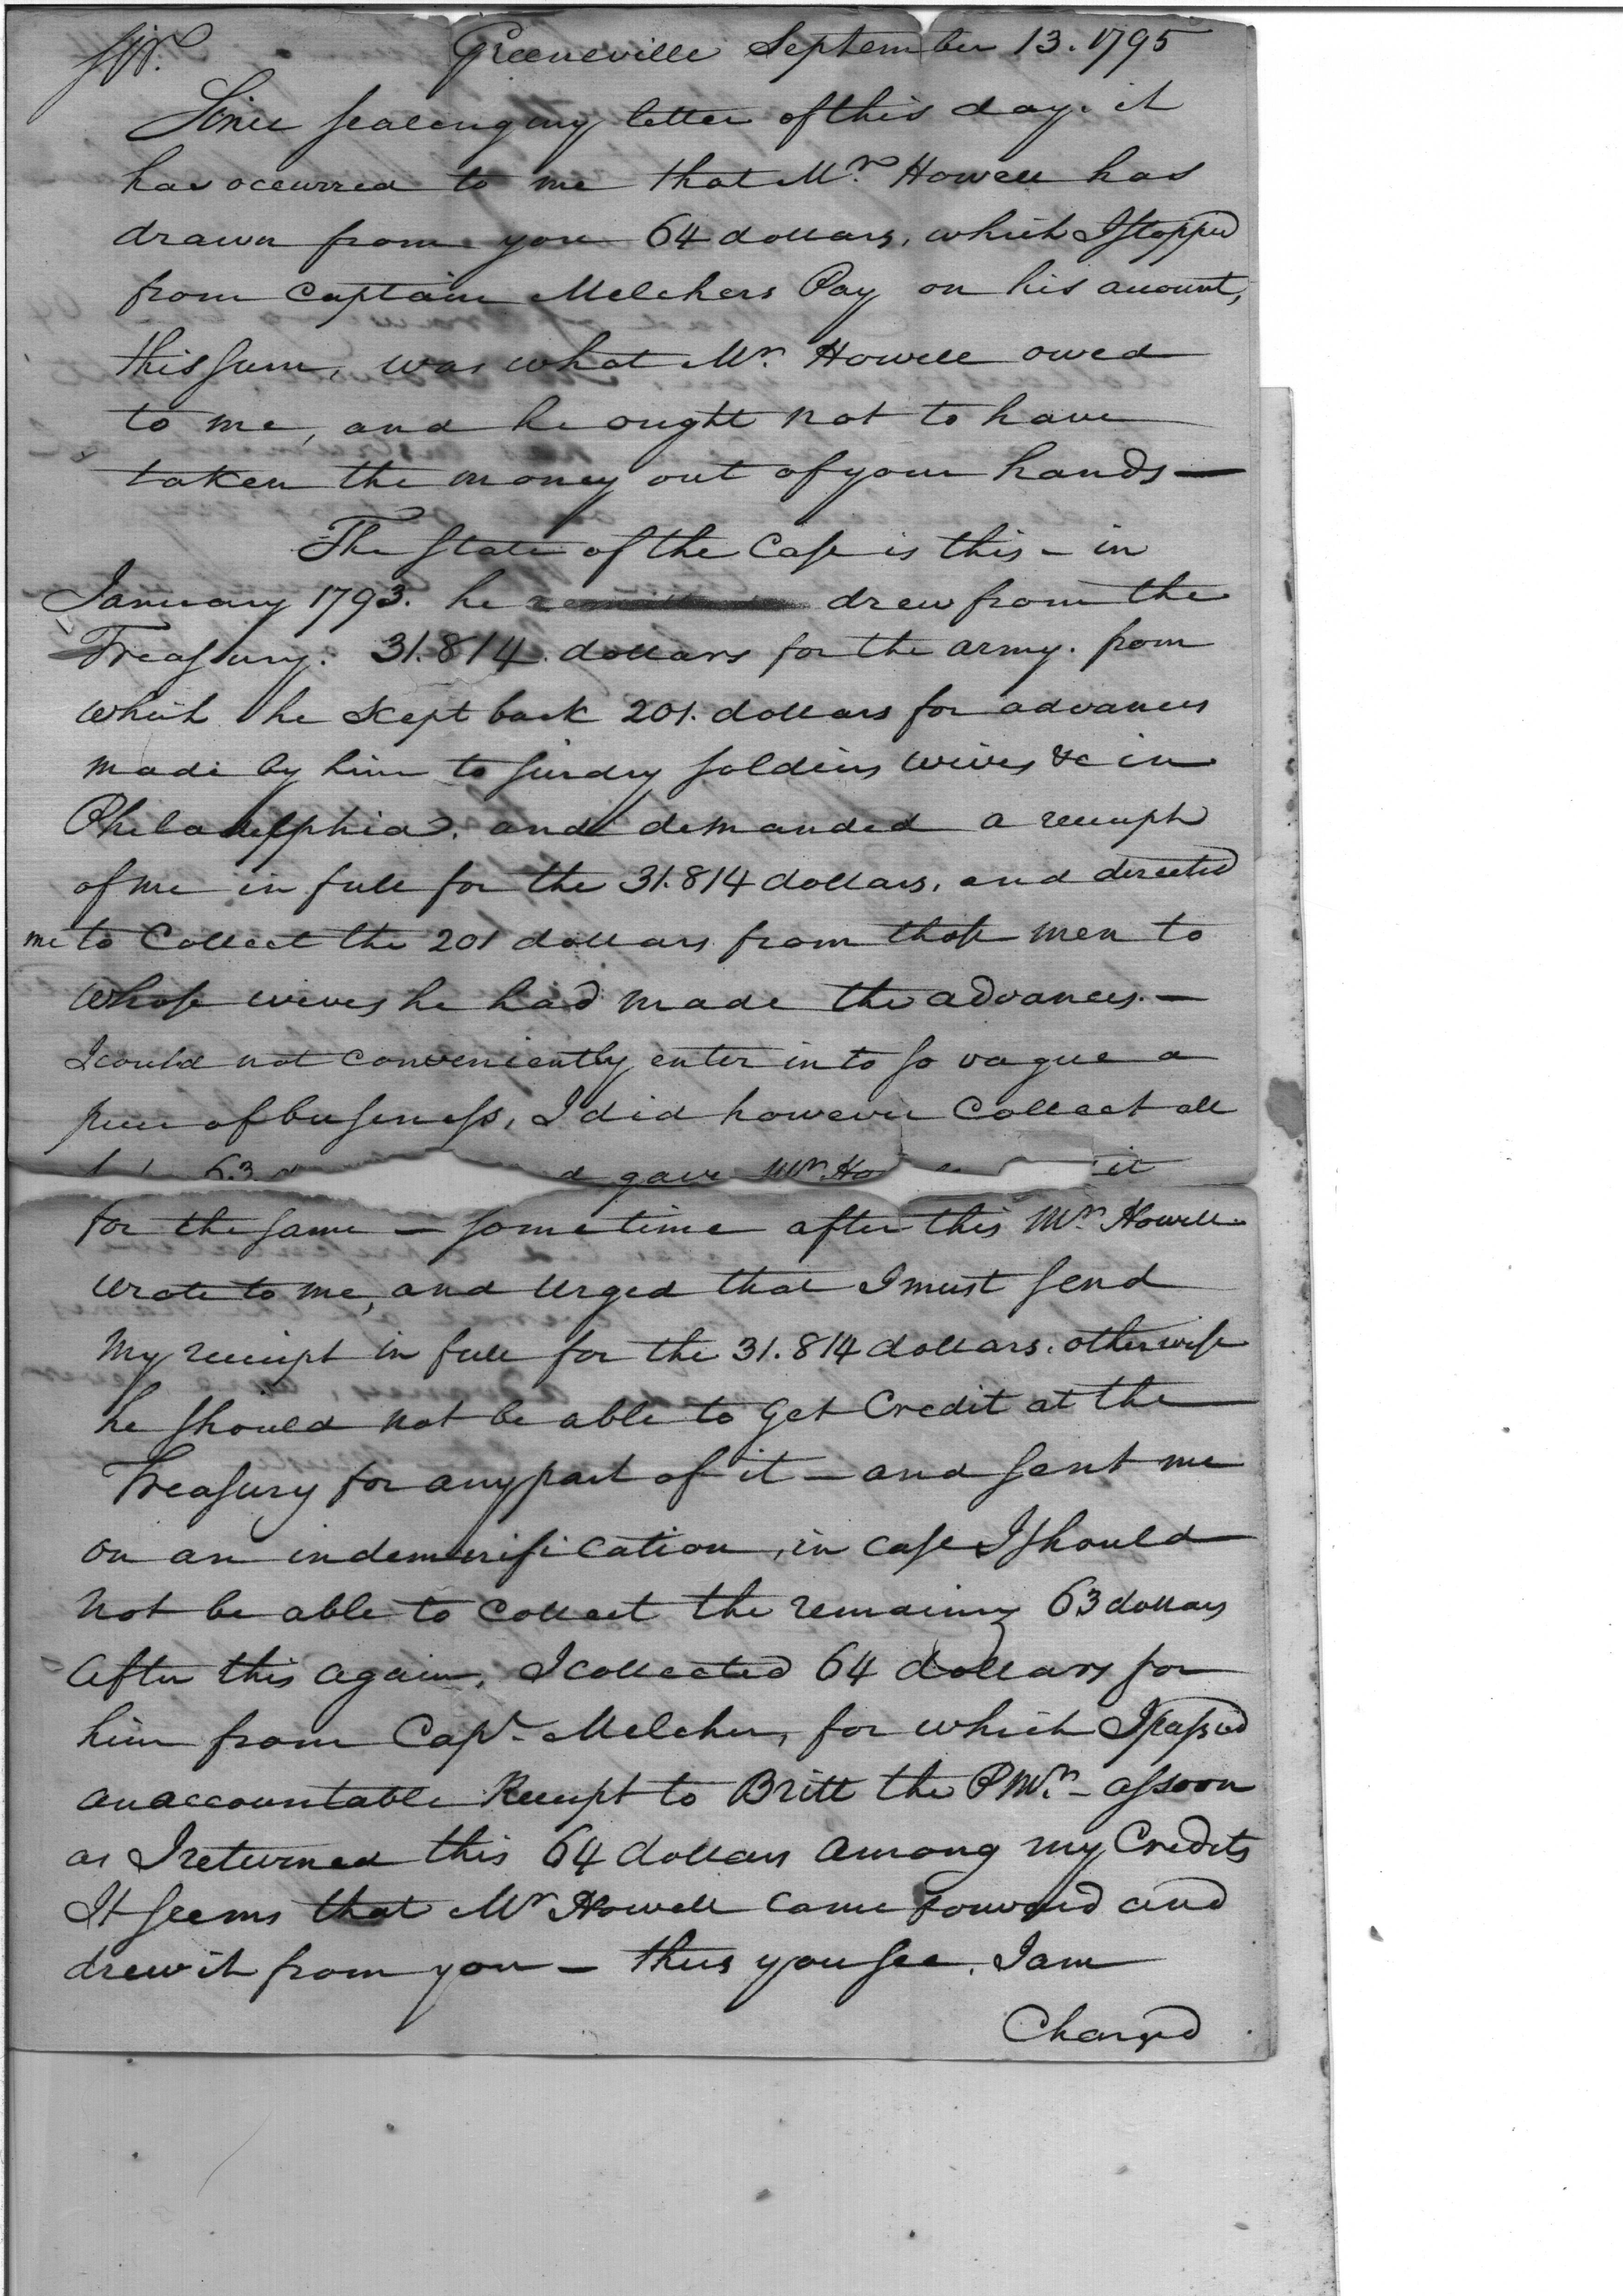 Sir.
Greeneville September 13. 1795
Since sealing my letter of this day. it
has occurred to me that Mr. Howell has
drawn from you 64 dollars, which I stopped
from Captain Melchers Pay on his account,
this sum, was what Mr. Howell owed
to me, and he ought not to have
taken the money out of your hands —
The state of the Case is this - in
January 1793. he drew from the
Treasury. 31.814. dollars for the army. from
which he kept back 201. dollars for advances
made by him to sundry soldiers wives &c in
Philadelphia. and demanded a receipt
of me in full for the 31.814 dollars, and directed
me to Collect the 201 dollars from those men to
whose wives he had made the advances. —
I could not conveniently enter into so vague a
piece of business, I did however Collect all
63 gave Mr. Ho it
for the same — sometime after this Mr. Howell
wrote to me, and urged that I must send
my receipt in full for the 31.814 dollars. otherwise
he should not be able to Get Credit at the
Treasury for any part of it — and sent me
on an indemnification, in case I should
not be able to Collect the remaining 63 dollars
After this again, I collected 64 dollars for
him from Capt. Melcher, for which I passed
an accountable Receipt to Britt the PMr. - as soon
as I returned this 64 dollars among my Credits
It seems that Mr Howell came forward and
drew it from you — thus you see, I am
Charged